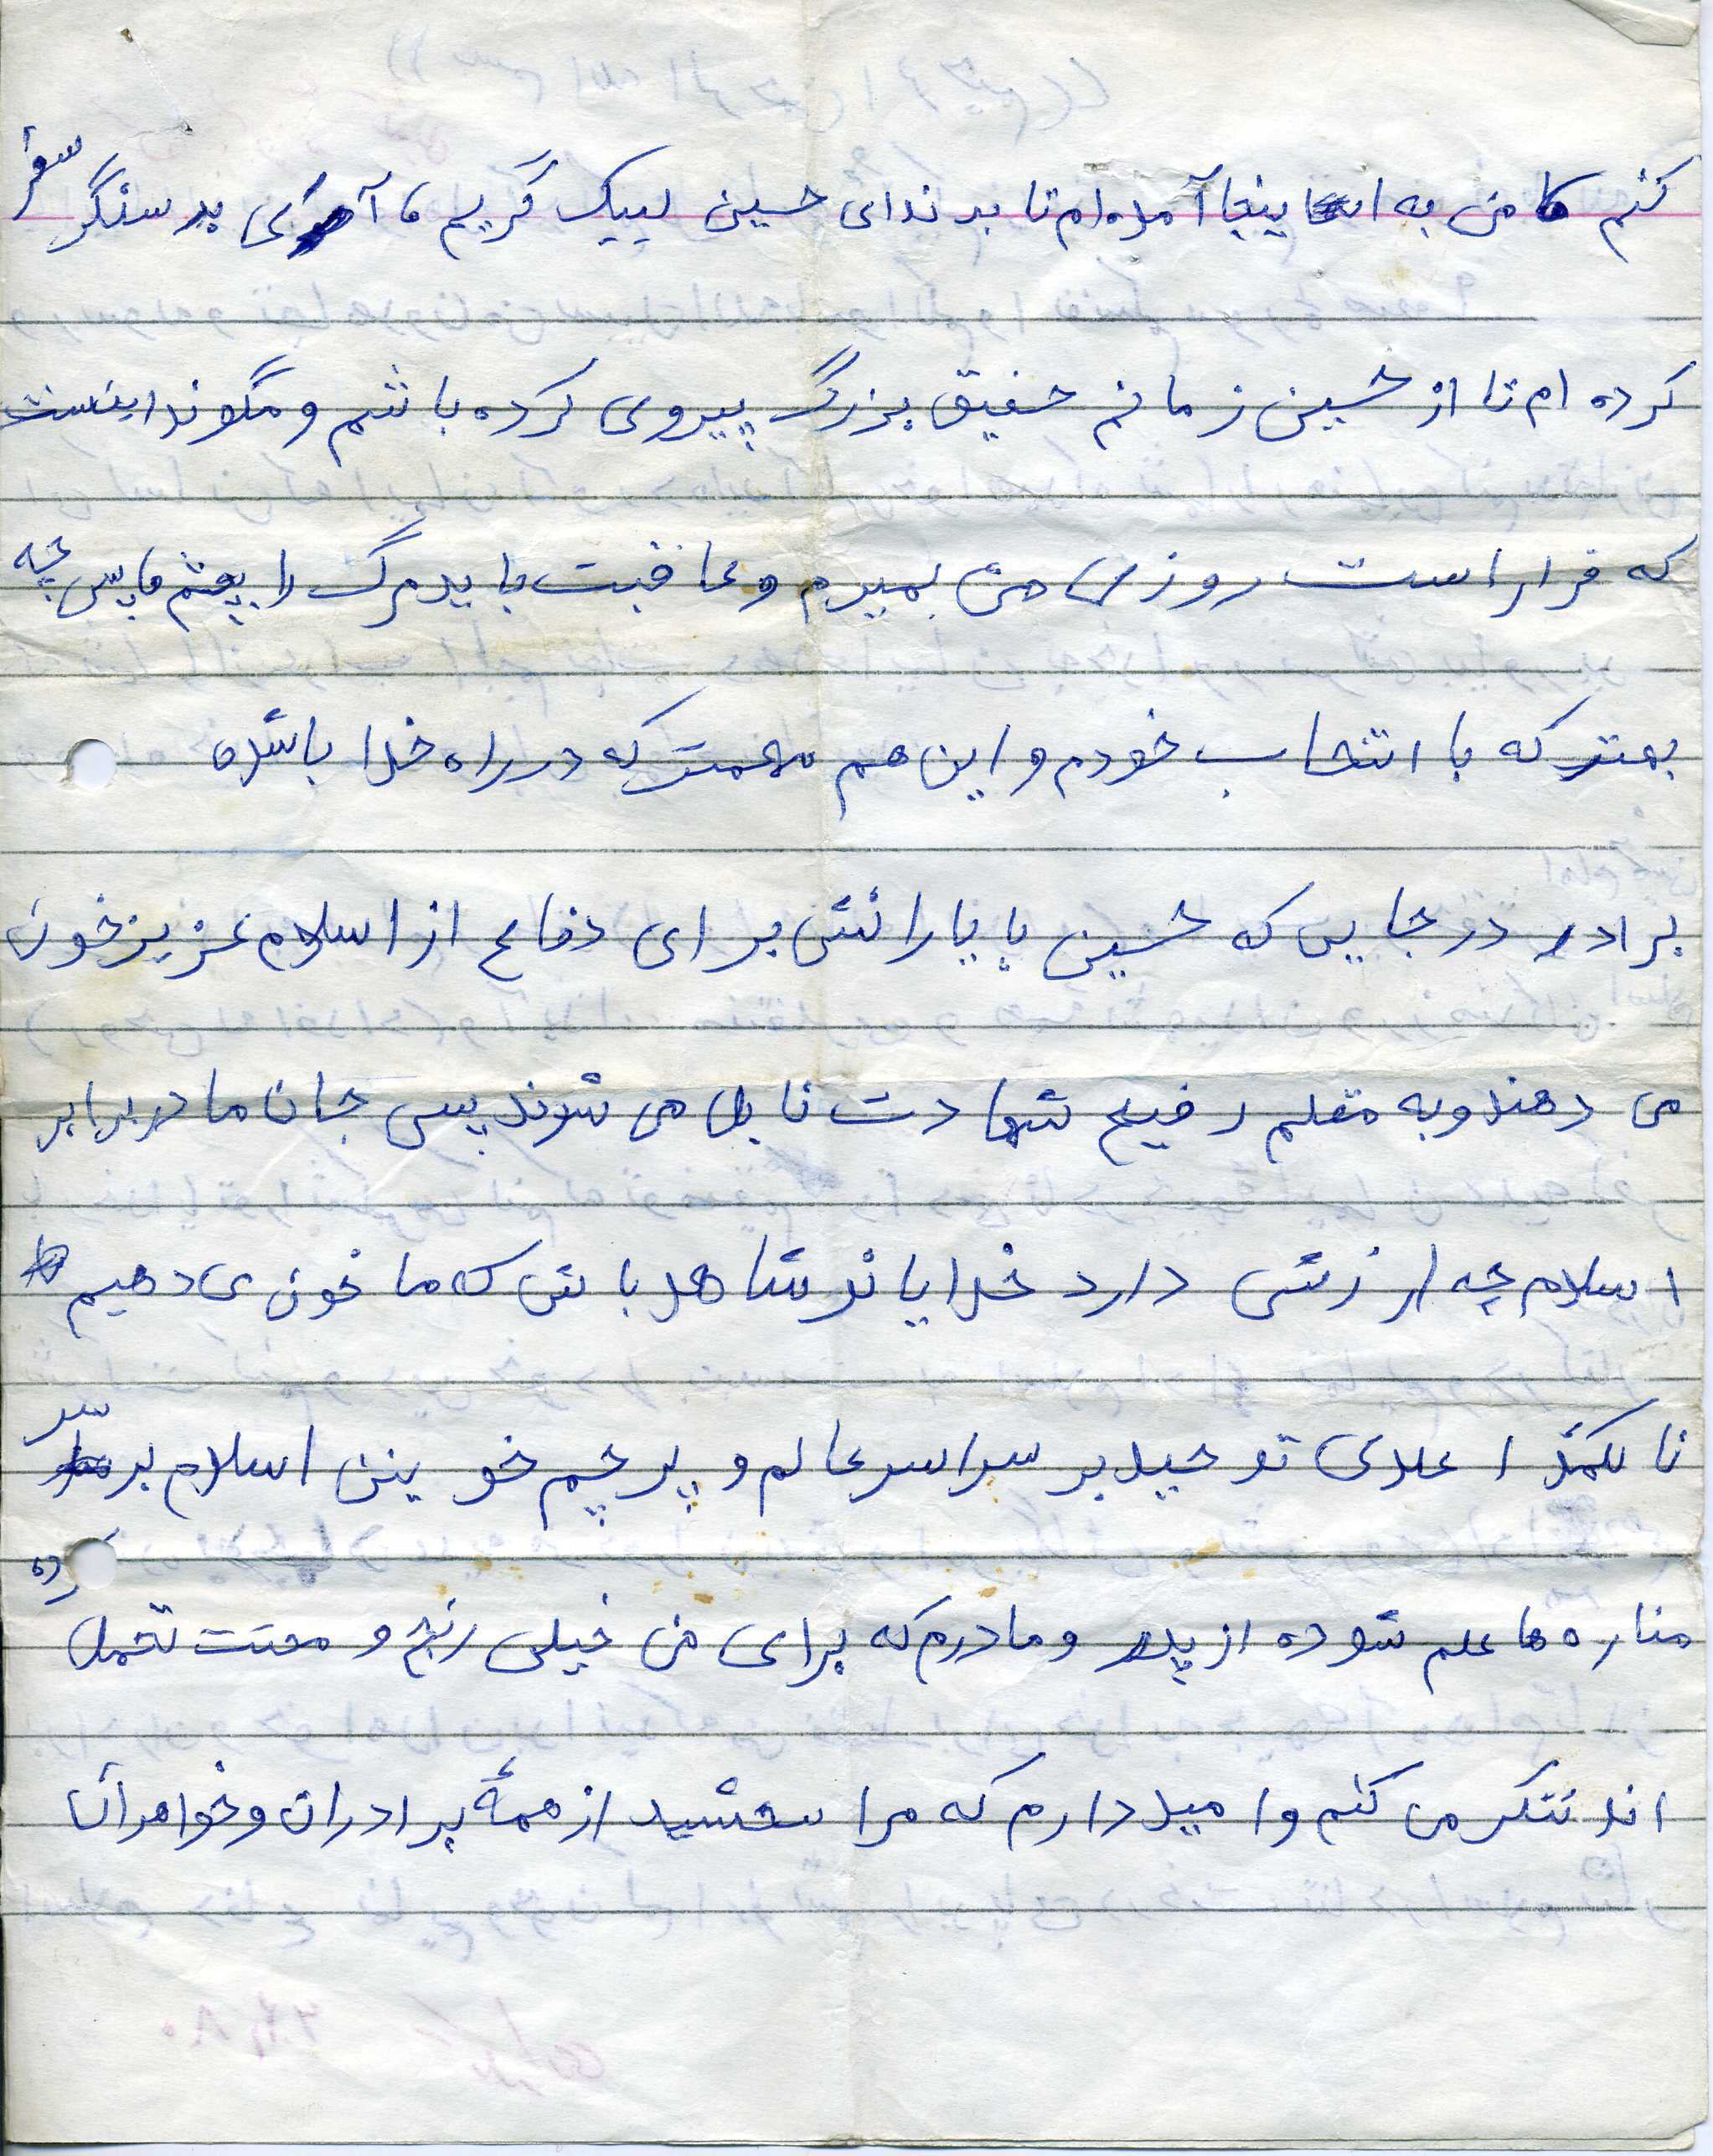 کنم من به اینجا آمده‌ام تا بر ندای حسین لبیک گویم آری بر سنگر سفر
کرده ام تا از حسین زمانم خمینی بزرگ پیروی کرده باشم و مگر نه اینست
که قرار است روزی من بمیرم و عاقبت باید مرگ را بچشم پس چه
بهتر که با انتخاب خودم و این هم مهمتر که در راه خدا باشد
برادر در جایی که حسین با یارانش برای دفاع از اسلام عزیز خون
می دهند و به مقام رفیع شهادت نایل می شوند پس جان ما در برابر
اسلام چه ارزشی دارد خدایا تو شاهد باش که ما خون می دهیم
تا کلمه اعلای توحید بر سراسر عالم و پرچم خونین اسلام بر سر
مناره ها علم شوده از پدر و مادرم که برای من خیلی رنج و محنت تحمل
اند تشکر می کنم و امید دارم که مرا ببخشید از همهٔ برادران و خواهران